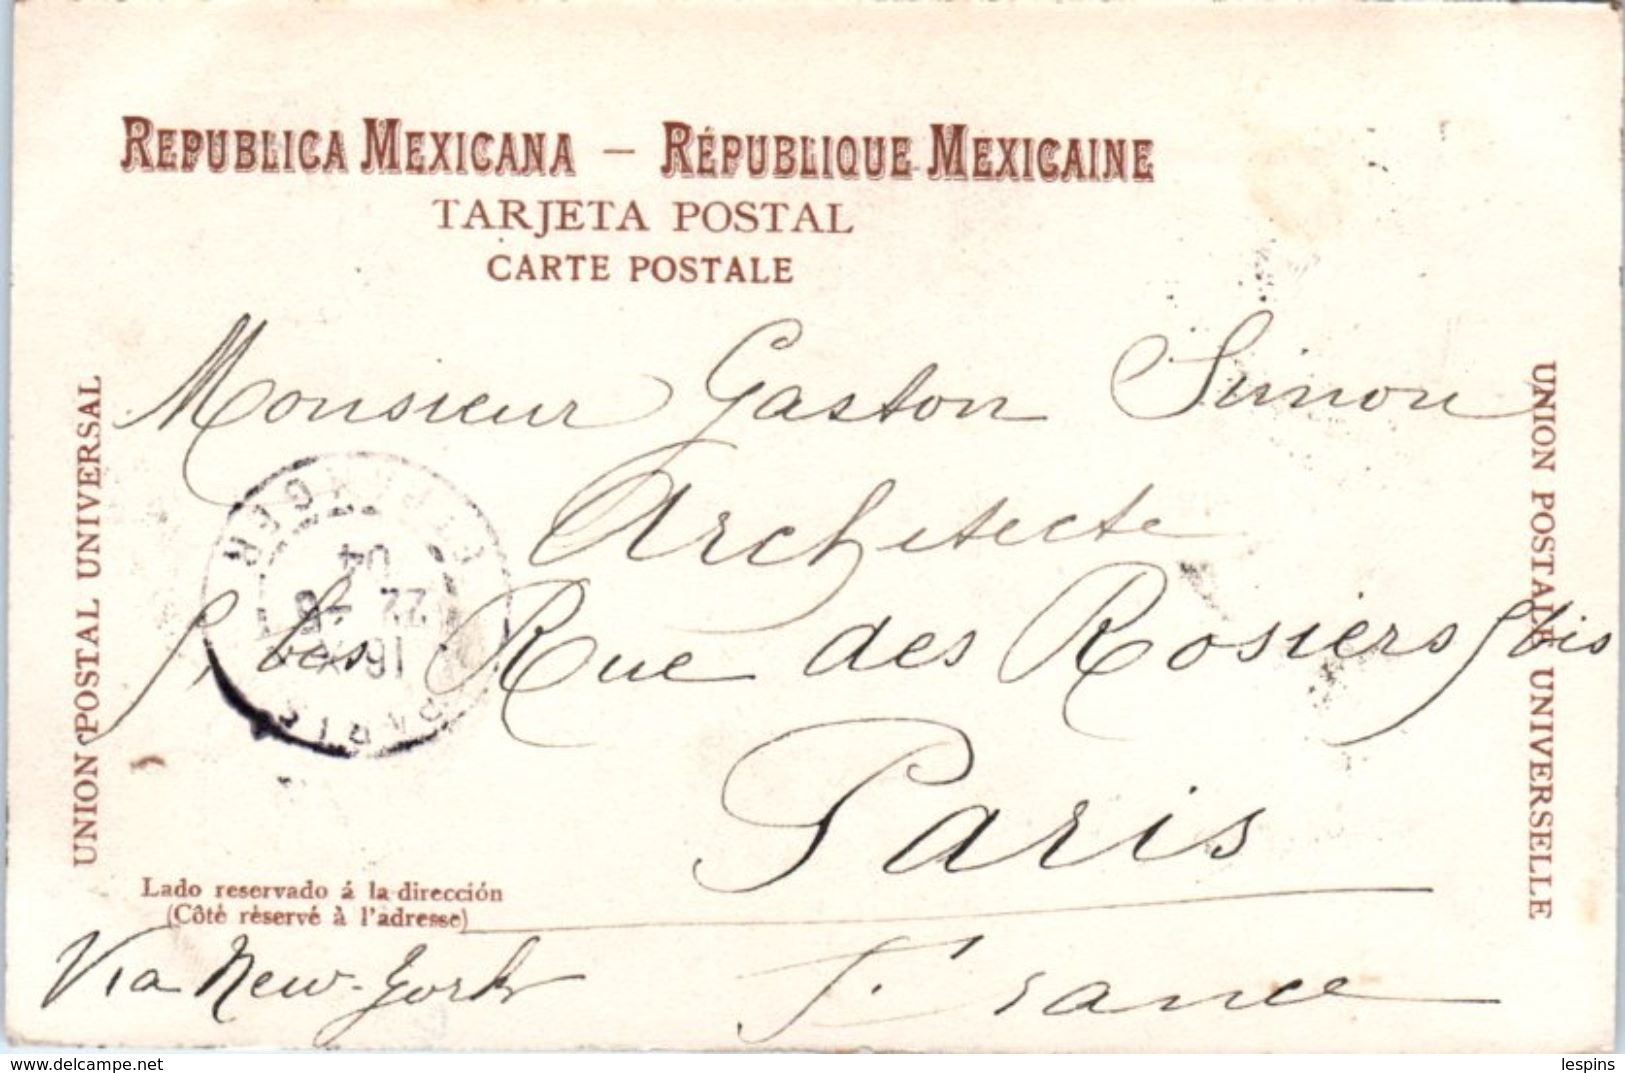 REPUBLICA MEXICANA — RÉPUBLIQUE MEXICAINE
TARJETA POSTAL
CARTE POSTALE
UNION POSTAL UNIVERSAL
UNION POSTALE UNIVERSELLE
Monsieur Gaston Simon
Architecte
9, bis Rue des Rosiers 9 bis
Paris
France
Via New-York
Lado reservado á la dirección
(Côté réservé à l'adresse)
PARIS
16
22
04
ETRANGER
https://www.delcampe.net
lespins